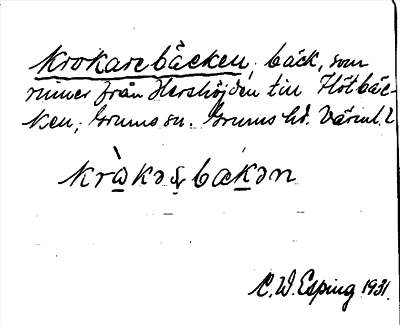 Krokarebäcken, bäck, som
rinner från Hershöjden till Flötbäc-
ken, Grums sn. Grums hd. Värml. l.
krò̠kə bäk̠ən
C. W. Esping 1931.